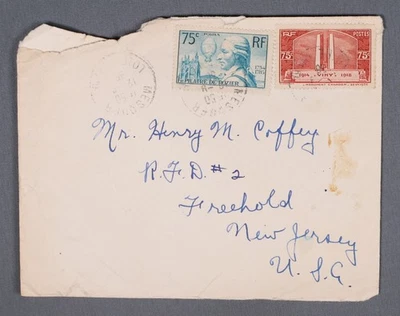 75c RF
PILATRE DE ROZIER
RF POSTES
75c 75c
1914 VIMY 1918
Mr. Henry M. Coffey
R.F.D. #2
Freehold
New Jersey
U.S.A.